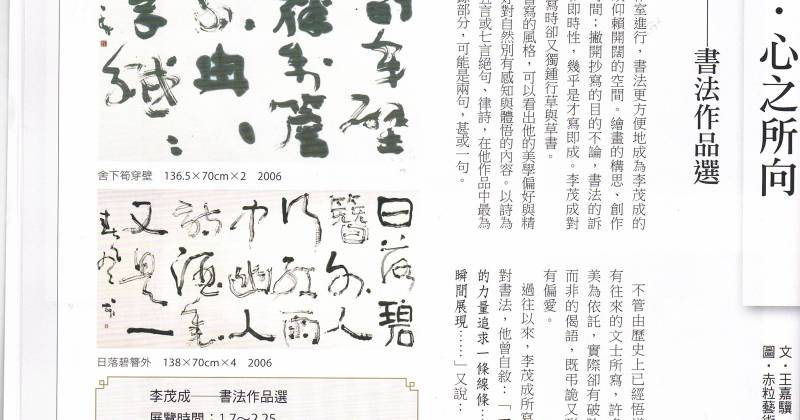 ‧心之所向
——書法作品選
文‧王嘉驥
圖‧赤粒藝術
室進行，書法更方便地成為李茂成的
仰賴開闊的空間。繪畫的構思、創作
間；撇開抄寫的目的不論，書法的訴
即時性，幾乎是才寫即成。李茂成對
寫時卻又獨鍾行草與草書。
寫的風格，可以看出他的美學偏好與精
好對自然別有感知與體悟的內容。以詩為
五言或七言絕句、律詩，在他作品中最為
部分，可能是兩句，甚或一句。
不管由歷史上已經悟
有往來的文士所寫，許
美為依託，實際卻有破
而非的偈語，既弔詭又
有偏愛。
過往以來，李茂成所寫
對書法，他曾自敘：「
的力量追求一條線條…
瞬間展現……」又說：
舍下筍穿壁 136.5×70cm×2 2006
日落碧
簪外人
行紅雨
中幽人
詩酒裏
又是一
春風
日落碧簪外 138×70cm×4 2006
李茂成——書法作品選
展覽時間：1.7～2.25